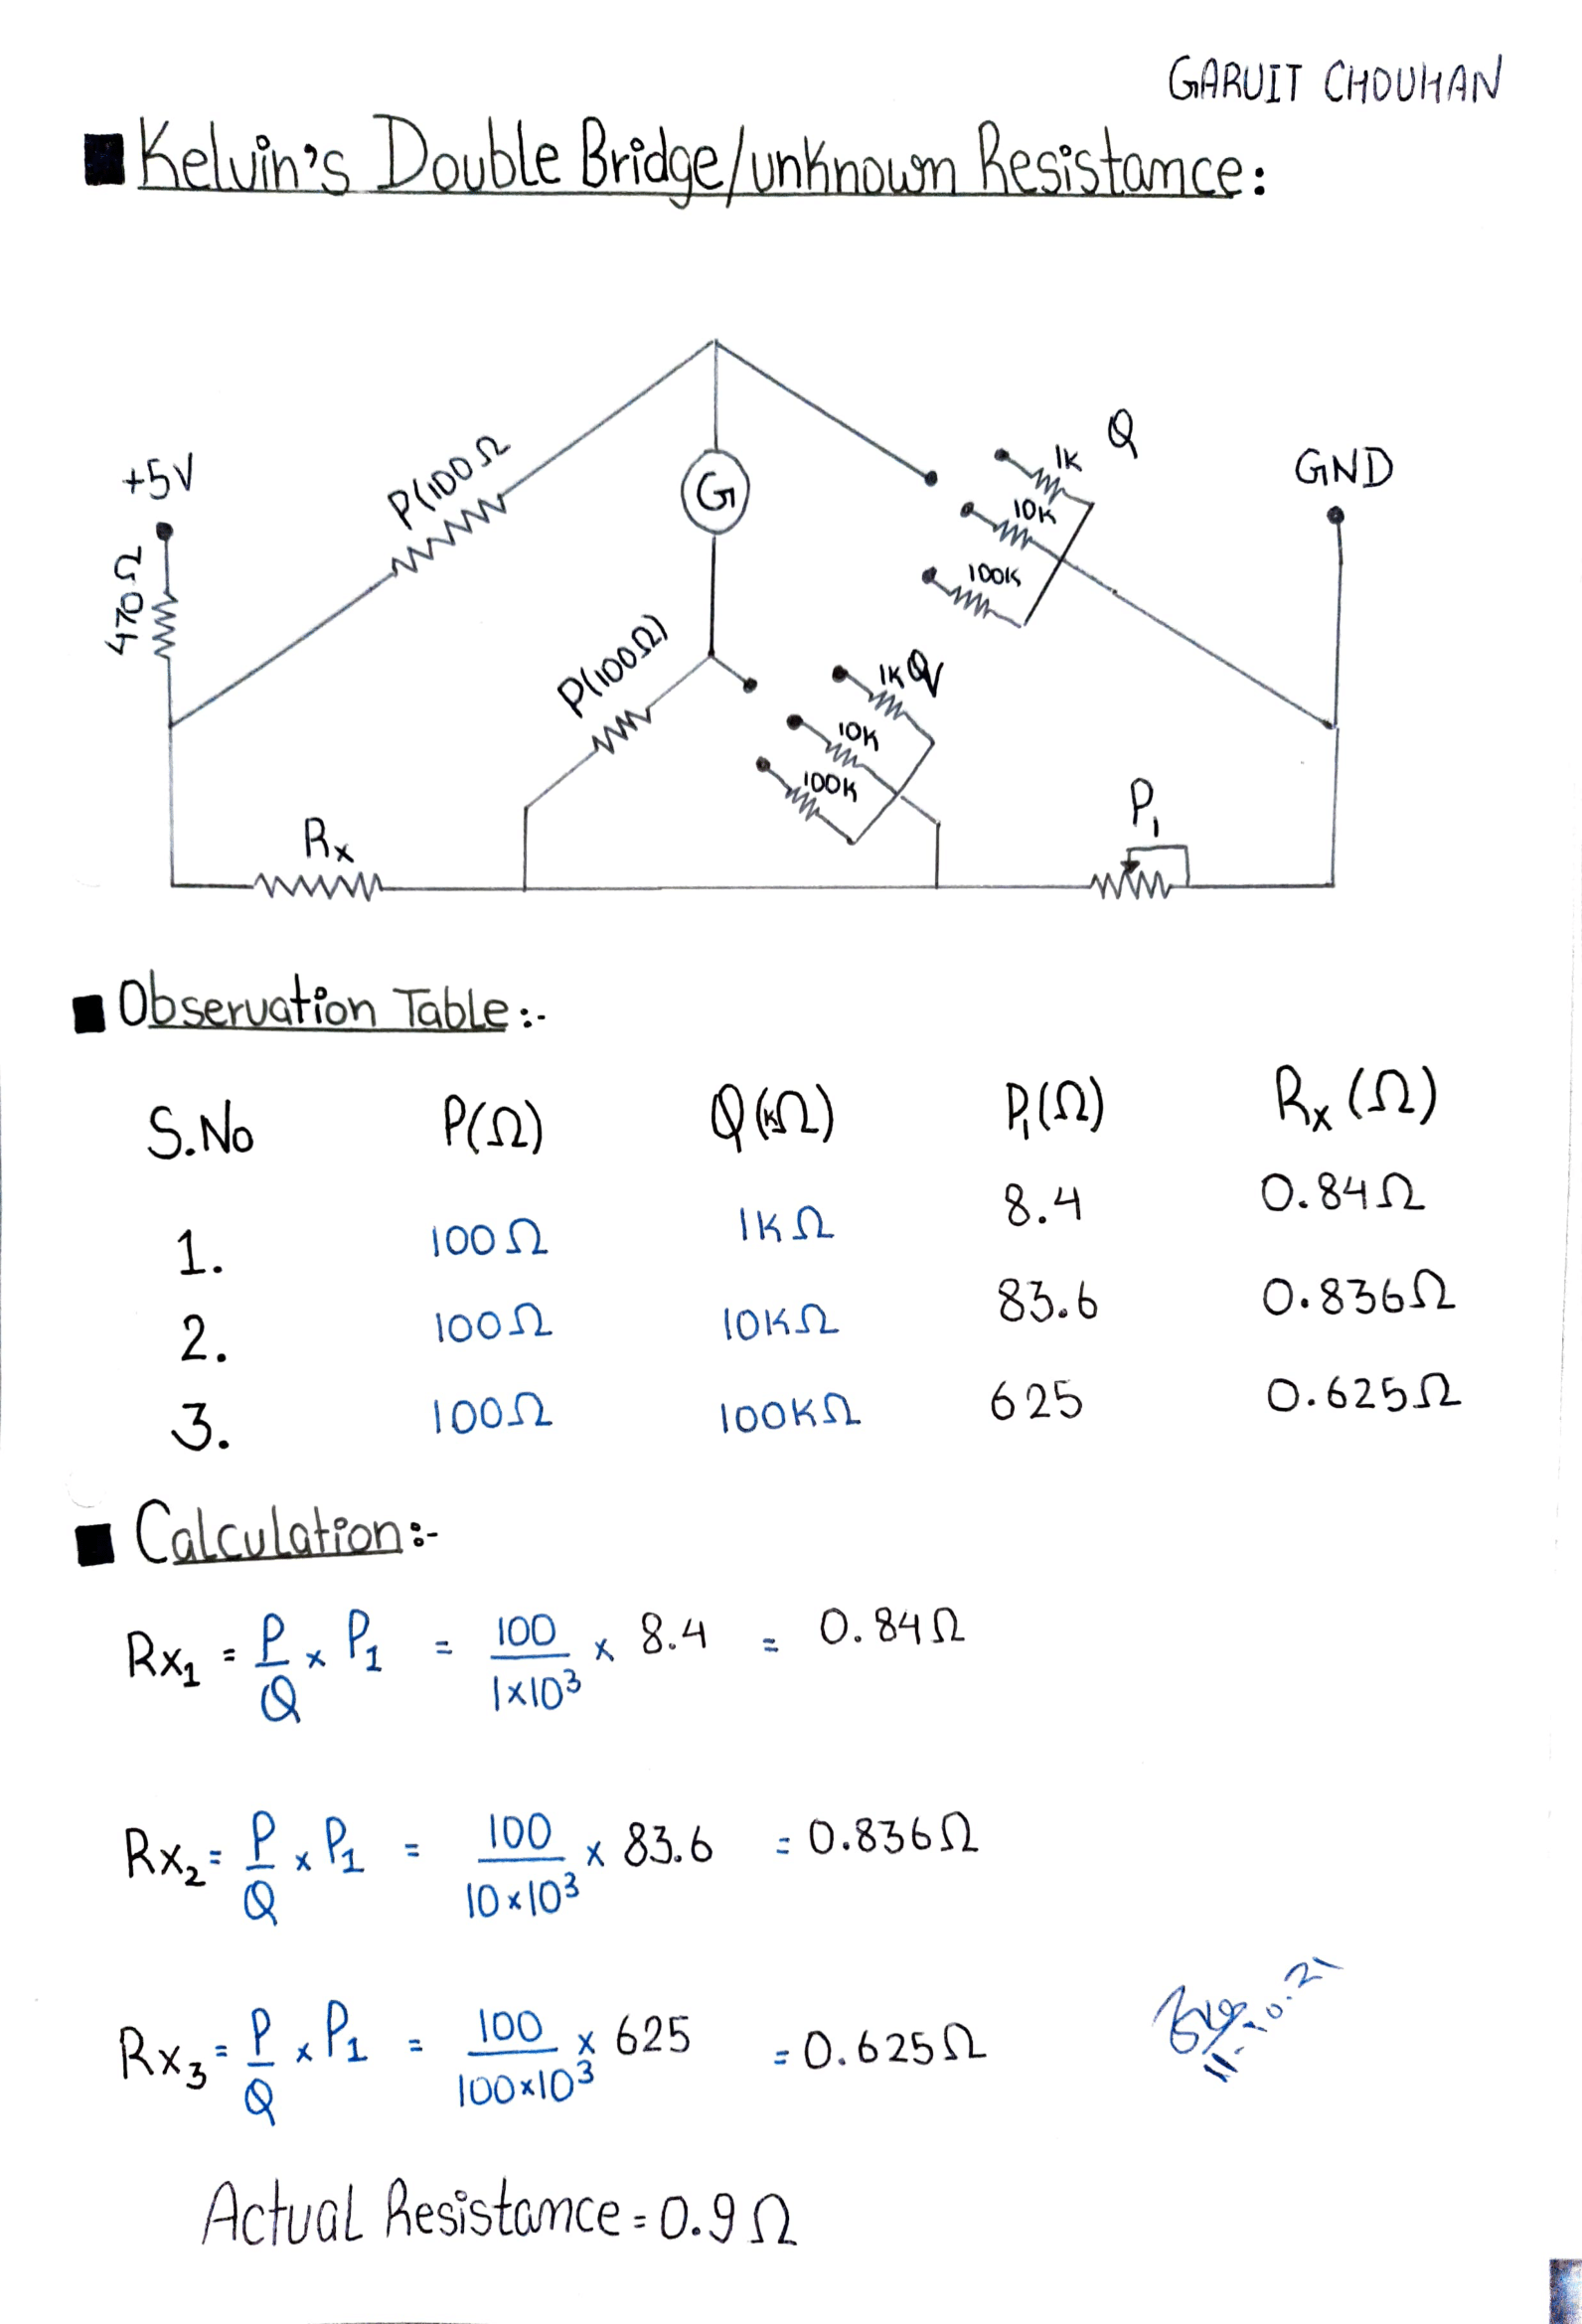 GARUIT CHOUHAN
Kelvin's Double Bridge/unknown Resistance:
+5V
470Ω
P(100Ω
G
Q
1K
10K
100K
GND
P(100Ω)
Q
1K
10K
100K
Rx
P1
Observation Table:-
S.No P(Ω) Q(kΩ) P1(Ω) Rx(Ω)
1. 100Ω 1KΩ 8.4 0.84Ω
2. 100Ω 10KΩ 83.6 0.836Ω
3. 100Ω 100KΩ 625 0.625Ω
Calculation:-
Rx1 = P/Q x P1 = 100/1x10³ x 8.4 = 0.84Ω
Rx2 = P/Q x P1 = 100/10x10³ x 83.6 = 0.836Ω
Rx3 = P/Q x P1 = 100/100x10³ x 625 = 0.625Ω
Actual Resistance = 0.9Ω